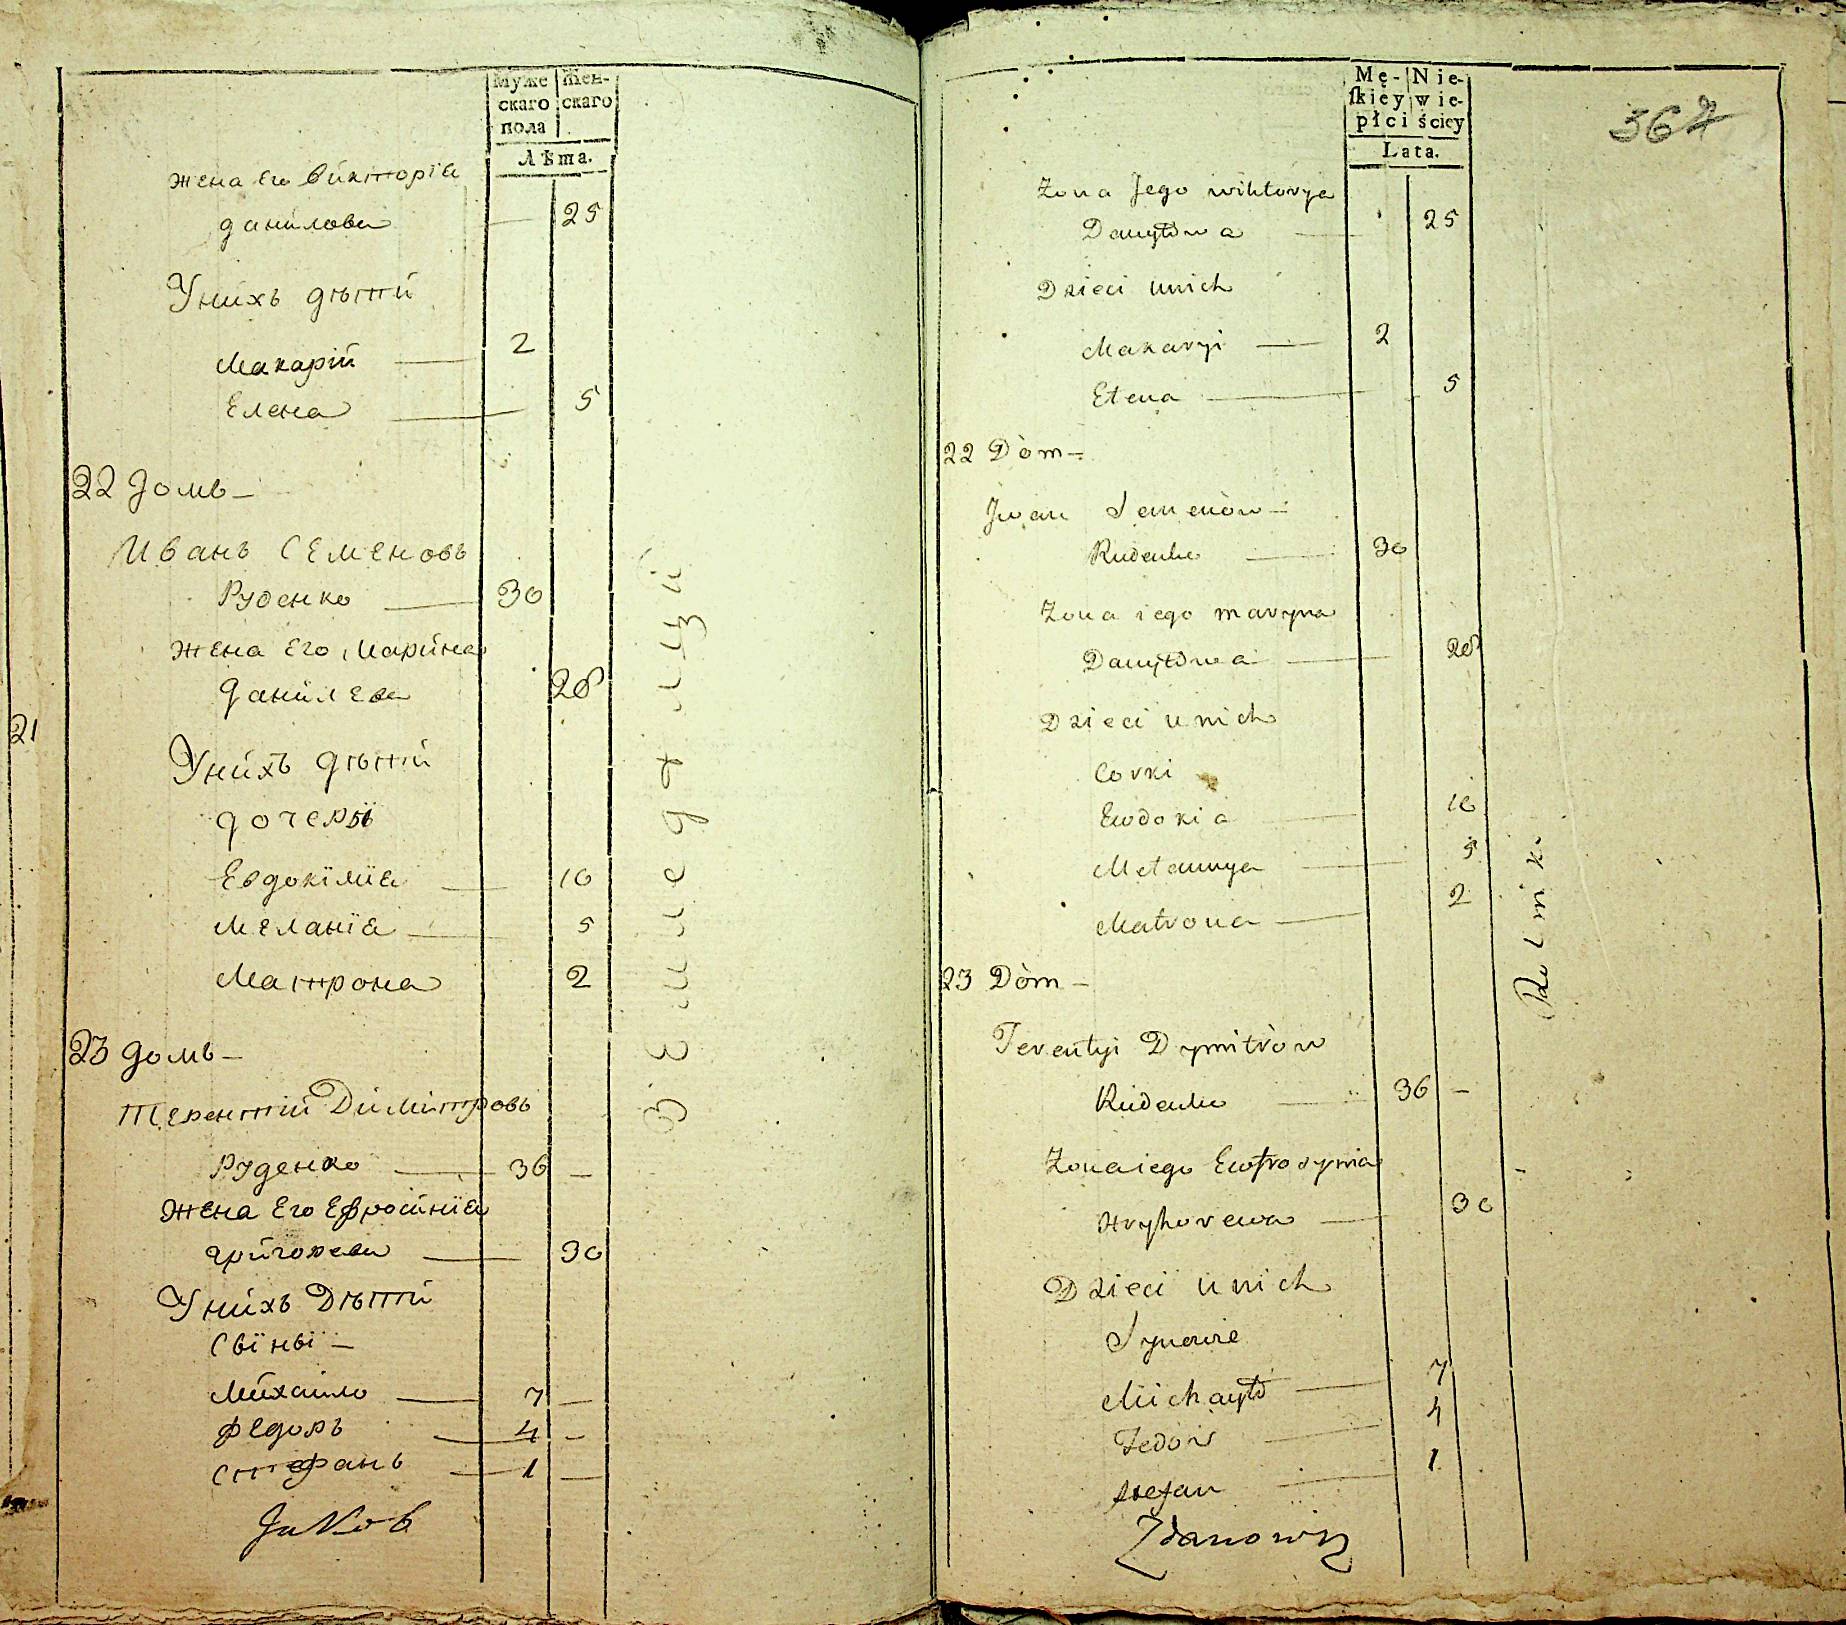 Муже
скаго
пола
Жен-
скаго
Лѣта.
жена его Викторія
данилова — 25
Унихъ дѣтей
Макарій — 2
Елена — 5
22 Домъ —
Иванъ Семеновъ
Руденко — 30
жена его Марина
данилева 28
21
Унихъ дѣтей
дочеры
Евдокімія — 10
Меланія — 5
Матрона 2
23 домъ —
Терентий Димитровъ
Руденко — 36 —
жена Его Ефросинія
григорева — 30
Унихъ Дѣтей
Сыны —
Михайло — 7 —
Федоръ — 4 —
Стефанъ — 1 —
Jakob
Земледѣлцы
367
Mę-
skiey
płci
Nie-
wie-
ściey
Lata.
Żona Jego wiktorya
Danyłowa — 25
Dzieci unich
Makaryi — 2
Elena — 5
22 Dòm —
Jwan Semenòw —
Rudenko — 30
Żona iego maryna
Danyłowa — 28
Dzieci unich
Corki
Ewdokia — 10
Melannya — 5
Matrona — 2
23 Dòm —
Terentyi Dymitròw
Rudenko — 36 —
Żona iego Ewfrosynia
Hryhorewa — 30
Dzieci unich
Synowie
Michayło — 7
Fedor — 4
Stefan — 1
Zdanowicz
Rolniki